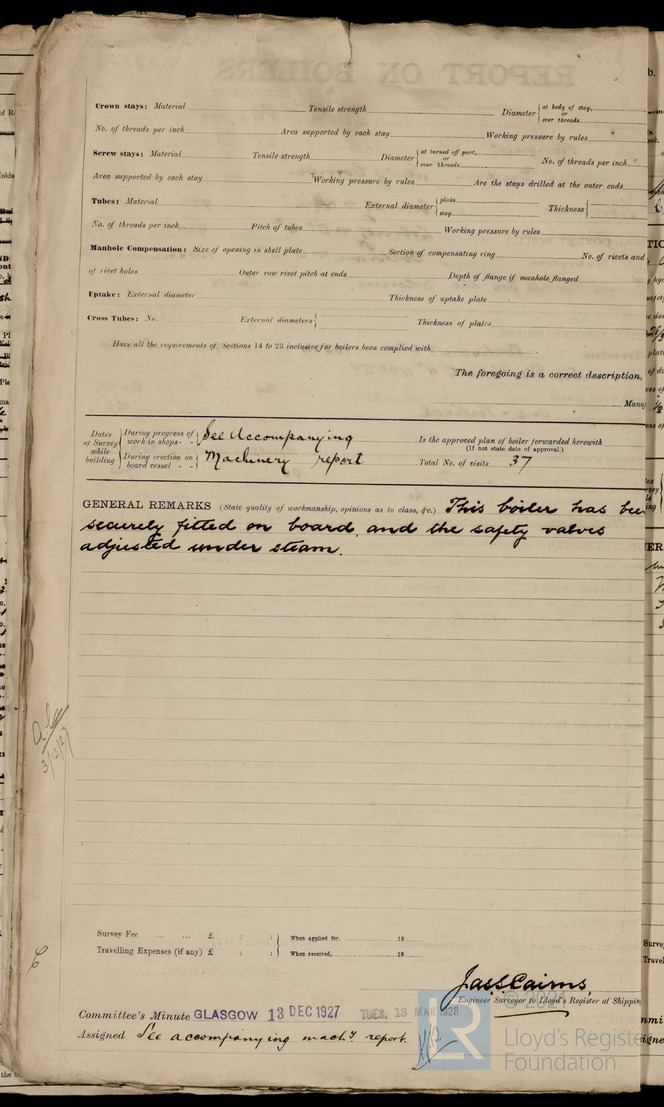 Crown stays: Material Tensile strength Diameter { at body of stay, or over threads
No. of threads per inch Area supported by each stay Working pressure by rules
Screw stays: Material Tensile strength Diameter { at turned off part, or over threads No. of threads per inch
Area supported by each stay Working pressure by rules Are the stays drilled at the outer ends
Tubes: Material External diameter { plain stay Thickness {
No. of threads per inch Pitch of tubes Working pressure by rules
Manhole Compensation: Size of opening in shell plate Section of compensating ring No. of rivets and
of rivet holes Outer row rivet pitch at ends Depth of flange if manhole flanged
Uptake: External diameter Thickness of uptake plate
Cross Tubes: No. External diameters { Thickness of plates
Have all the requirements of Sections 14 to 23 inclusive for boilers been complied with
The foregoing is a correct description,
Manu
Dates of Survey while building { During progress of work in shops - - } See Accompanying
{ During erection on board vessel - - } Machinery report
Is the approved plan of boiler forwarded herewith
(If not state date of approval.)
Total No. of visits 37
GENERAL REMARKS (State quality of workmanship, opinions as to class, &c.) This boiler has bee
securely fitted on board, and the safety valves
adjusted under steam.
3/12/27
Survey Fee ... ... £ : : } When applied for, 19
Travelling Expenses (if any) £ : : } When received, 19
Jas S Cairns,
Engineer Surveyor to Lloyd's Register of Shippin
© 2021
Committee's Minute GLASGOW 13 DEC 1927 TUES. 13 MAR 1928
Assigned See accompanying machy report.
LR
Lloyd's Registe
Foundation